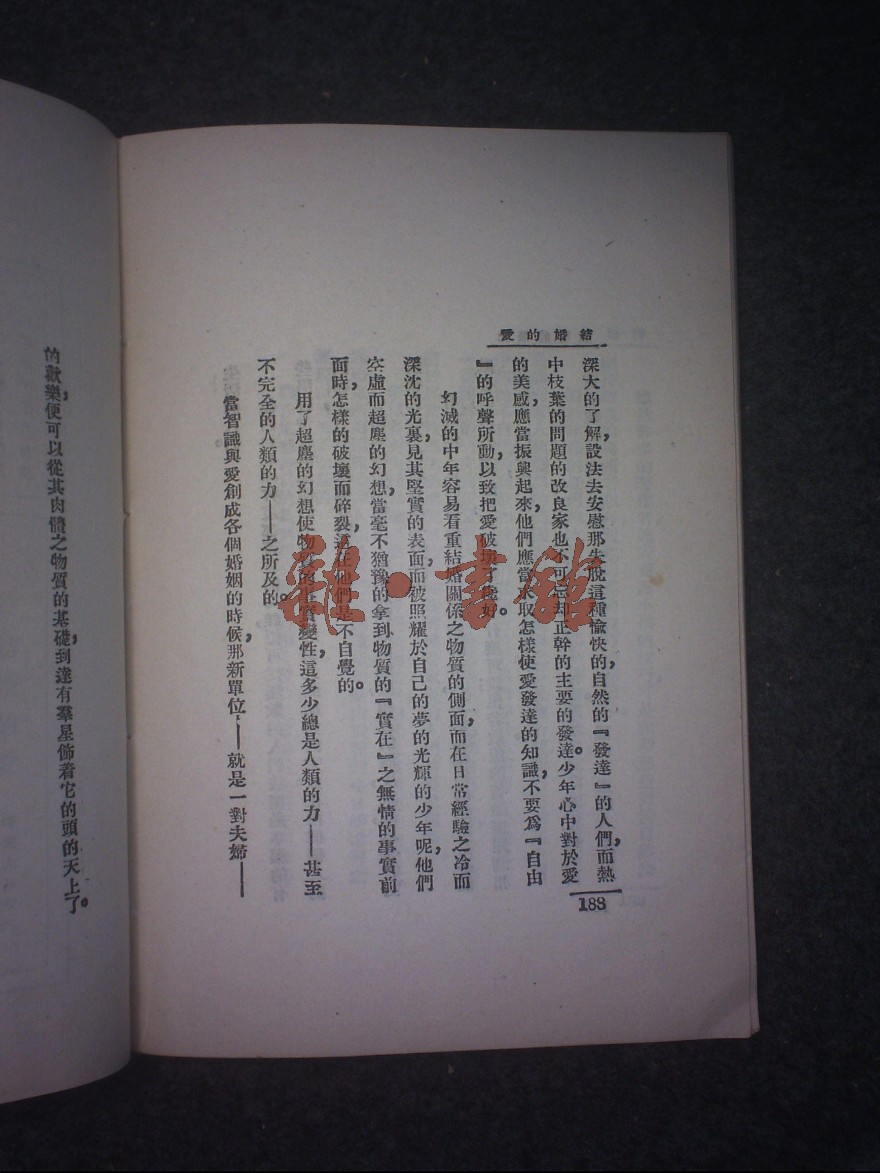 結婚的愛
深大的了解，設法去安慰那失脫這種愉快的，自然的『發達』的人們，而熱
中枝葉的問題的改良家也不可忘却正幹的主要的發達。少年心中對於愛
的美感，應當振興起來，他們應當求取怎樣使愛發達的知識，不要爲『自由
』的呼聲所動，以致把愛破壞了好。
幻滅的中年容易看重結婚關係之物質的側面，而在日常經驗之冷而
深沈的光裏，見其堅實的表面，而被照耀於自己的夢的光輝的少年呢，他們
空虛而超塵的幻想，當毫不猶豫的拿到物質的『實在』之無情的事實前
面時，怎樣的破壞而碎裂，這在他們是不自覺的。
用了超塵的幻想使物質的事實變性，這多少總是人類的力——甚至
不完全的人類的力——之所及的。
當智識與愛創成各個婚姻的時候，那新單位——就是一對夫婦——
188
的歡樂，便可以從其肉體之物質的基礎，到達有羣星飾着它的頭的天上了。
雅·書館